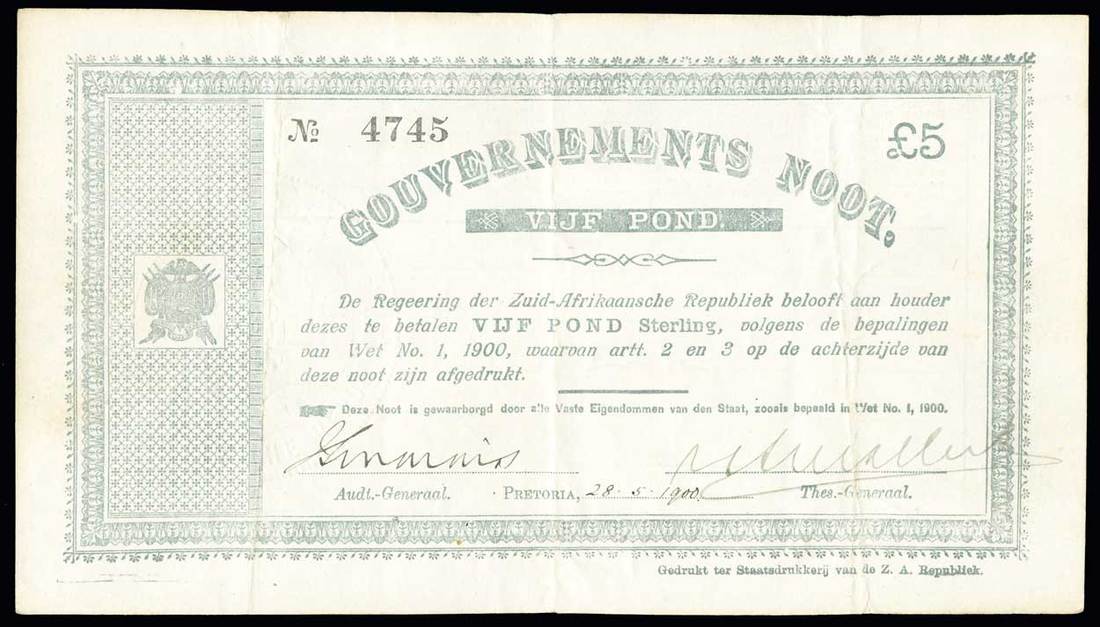 № 4745
£5
GOUVERNEMENTS NOOT.
VIJF POND.
De Regeering der Zuid-Afrikaansche Republiek belooft aan houder
dezes te betalen VIJF POND Sterling, volgens de bepalingen
van Wet No. 1, 1900, waarvan artt. 2 en 3 op de achterzijde van
deze noot zijn afgedrukt.
Deze Noot is gewaarborgd door alle Vaste Eigendommen van den Staat, zooals bepaald in Wet No. 1, 1900.
Audt.-Generaal. PRETORIA, 28-5-1900 Thes.-Generaal.
Gedrukt ter Staatsdrukkerij van de Z. A. Republiek.